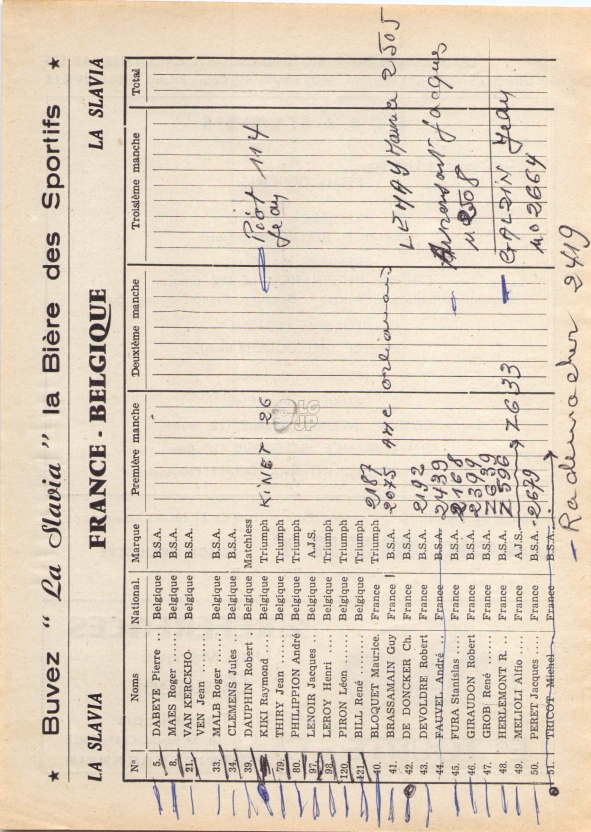 ★ Buvez “ La Slavia ” la Bière des Sportifs ★
LA SLAVIA FRANCE - BELGIQUE LA SLAVIA
Nº Noms National. Marque Première manche Deuxième manche Troisième manche Total
5. DABEYE Pierre .. Belgique B.S.A.
8. MAES Roger ...... Belgique B.S.A.
21. VAN KERCKHO-
VEN Jean ........ Belgique B.S.A.
33. MALB Roger .... Belgique B.S.A.
34. CLEMENS Jules .. Belgique B.S.A.
39. DAUPHIN Robert . Belgique Matchless
KIKI Raymond .... Belgique Triumph KINET 26 Piot 114
Jean
79. THIRY Jean ..... Belgique Triumph
80. PHILIPPION André Belgique Triumph
97. LENOIR Jacques .. Belgique A.J.S.
98. LEROY Henri .... Belgique Triumph
120. PIRON Léon ..... Belgique Triumph
121. BILL René ....... Belgique Triumph
40. BLOQUET Maurice. France Triumph 2187
41. BRASSAMAIN Guy France B.S.A. 2075
42. DE DONCKER Ch. France B.S.A. LEHAY 2505
43. DEVOLDRE Robert France B.S.A. 2192
44. FAUVEL André .. France B.S.A. 2439 Jacques
45. FURA Stanislas .... France B.S.A. 2168 2508
46. GIRAUDON Robert France B.S.A. 2399
47. GROB René ...... France B.S.A.
48. HERLEMONT R. .. France B.S.A. 2596 GALDIN Jean
49. MELIOLI Alfio .... France A.J.S. → 2633 no 2664
50. PERET Jacques .... France B.S.A. - 2679
51. TRICOT Michel .. France B.S.A.
- Rademacher 2419